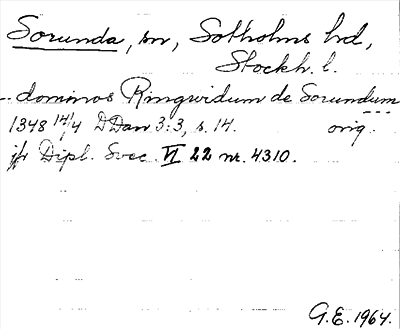 Sorunda, sn, Sotholms hd,
Stockh. l.
-- dominos Ringwidum de Sorundum
1348 14/4 DDan 3:3, s. 14. orig.
jfr Dipl. Svec. VI 22 nr. 4310.
G.E. 1964.